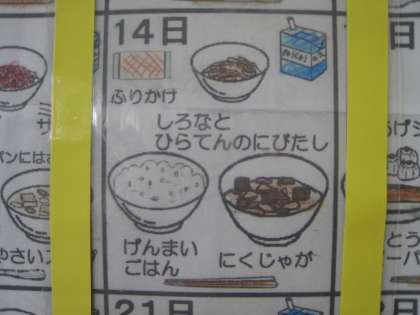 14日
ふりかけ
しろなと
ひらてんのにびたし
げんまい
ごはん
にくじゃが
パンにはさ
やさいス
21日